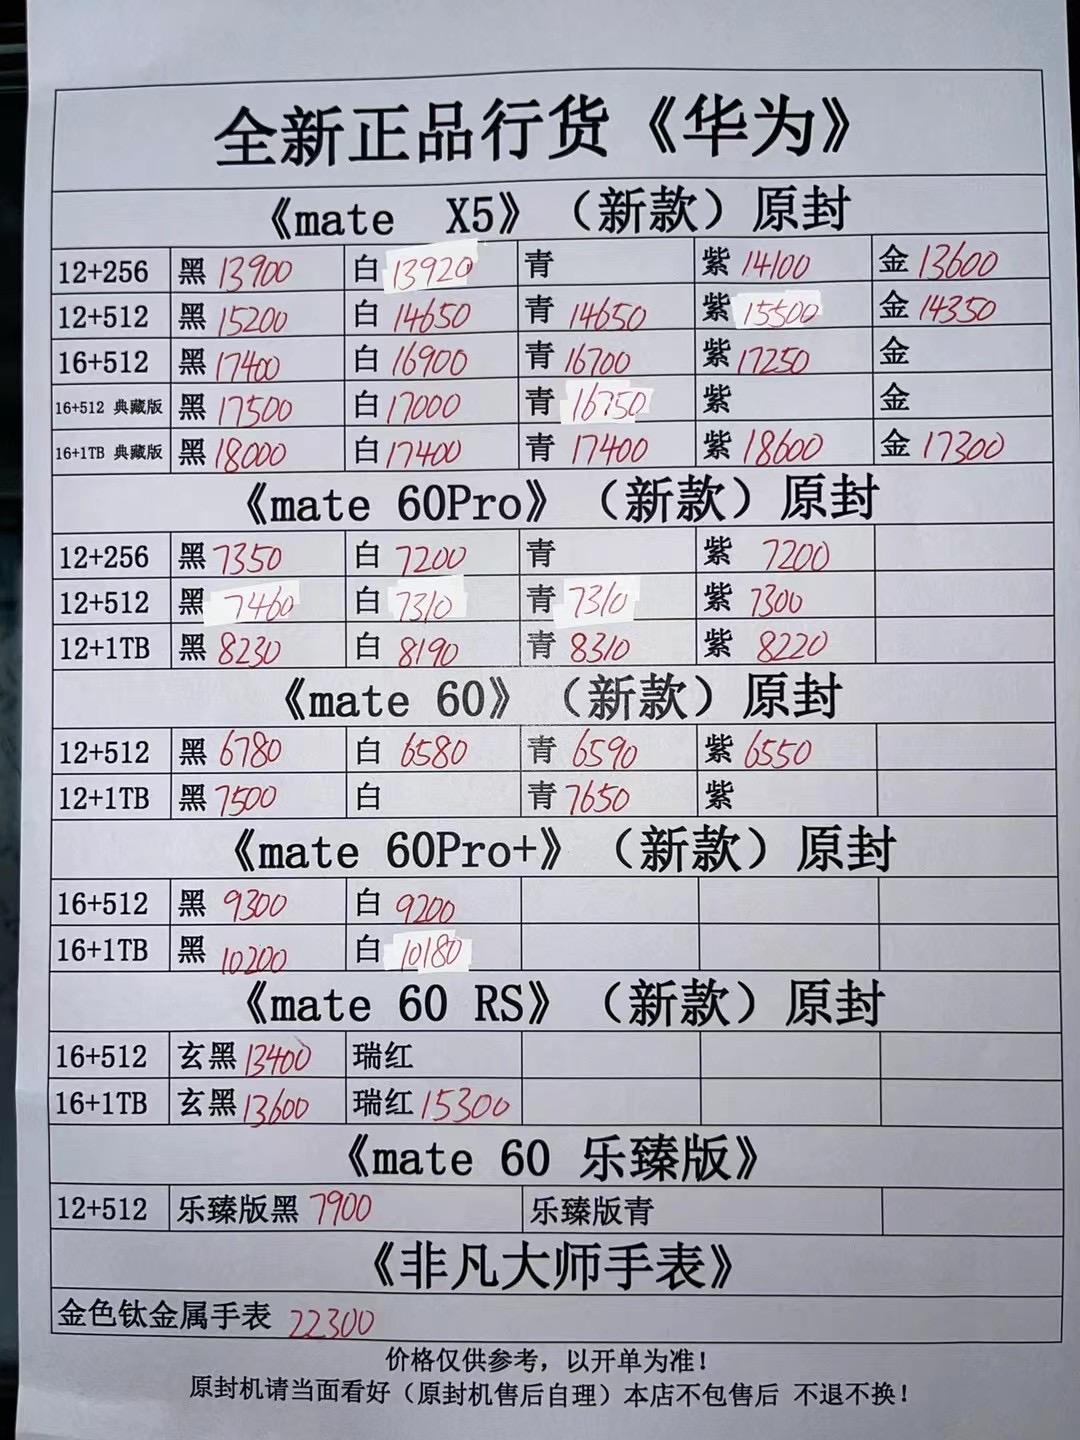 全新正品行货《华为》
《mate X5》（新款）原封
12+256 黑 13900 白 13920 青 紫 14100 金 13600
12+512 黑 15200 白 14650 青 14650 紫 15500 金 14350
16+512 黑 17400 白 16900 青 16700 紫 17250 金
16+512 典藏版 黑 17500 白 17000 青 16750 紫 金
16+1TB 典藏版 黑 18000 白 17400 青 17400 紫 18600 金 17300
《mate 60Pro》（新款）原封
12+256 黑 7350 白 7200 青 紫 7200
12+512 黑 7460 白 7310 青 7310 紫 7300
12+1TB 黑 8230 白 8190 青 8310 紫 8220
《mate 60》（新款）原封
12+512 黑 6780 白 6580 青 6590 紫 6550
12+1TB 黑 7500 白 青 7650 紫
《mate 60Pro+》（新款）原封
16+512 黑 9300 白 9200
16+1TB 黑 10200 白 10180
《mate 60 RS》（新款）原封
16+512 玄黑 13400 瑞红
16+1TB 玄黑 13600 瑞红 15300
《mate 60 乐臻版》
12+512 乐臻版黑 7900 乐臻版青
《非凡大师手表》
金色钛金属手表 22300
价格仅供参考，以开单为准！
原封机请当面看好（原封机售后自理）本店不包售后 不退不换！